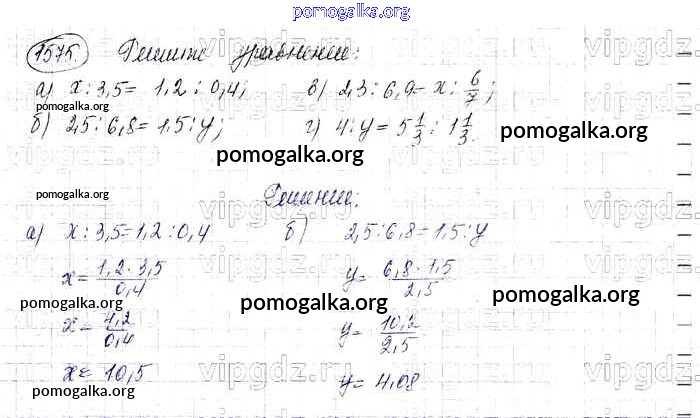 pomogalka.org
1575. Решите уравнение:
а) x : 3,5 = 1,2 : 0,4; в) 2,3 : 6,9 = x : 6/7;
pomogalka.org
б) 2,5 : 6,8 = 1,5 : y; г) 4 : y = 5 1/3 : 1 1/3.
pomogalka.org
pomogalka.org
vipgdz.ru
pomogalka.org
Решение:
а) x : 3,5 = 1,2 : 0,4 б) 2,5 : 6,8 = 1,5 : y
x = 1,2 · 3,5 / 0,4 y = 6,8 · 1,5 / 2,5
pomogalka.org pomogalka.org pomogalka.org
x = 4,2 / 0,4 y = 10,2 / 2,5
x = 10,5 y = 4,08
pomogalka.org pomogalka.org
vipgdz.ru